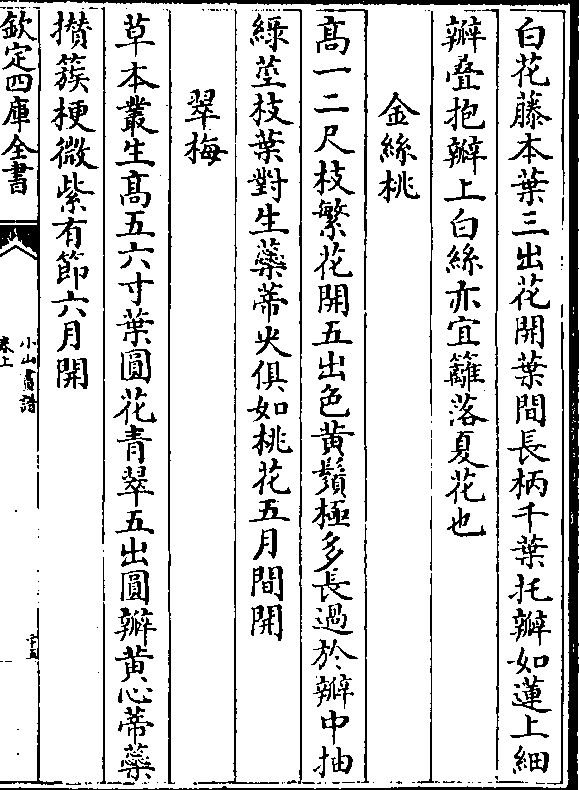 白花藤本葉三出花開葉間長柄千葉托瓣如蓮上細
瓣疊抱瓣上白絲亦宜籬落夏花也
金絲桃
高一二尺枝繁花開五出色黄鬚極多長過於瓣中抽
綠莖枝葉對生蘂蒂火俱如桃花五月間開
翠梅
草本叢生高五六寸葉圓花青翠五出圓瓣黄心蒂蘂
攅簇梗微紫有節六月開
欽定四庫全書
小山畫譜
卷上
十五